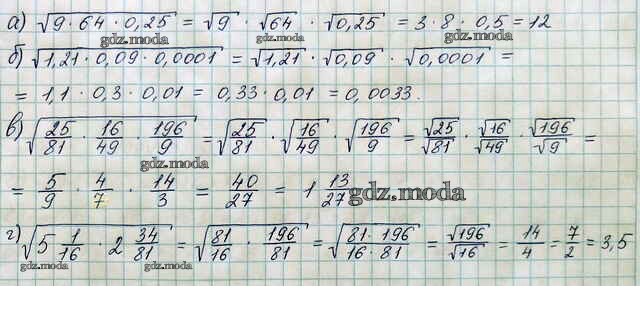 а) √9 · 64 · 0,25 = √9 · √64 · √0,25 = 3 · 8 · 0,5 = 12
gdz.moda gdz.moda
б) √1,21 · 0,09 · 0,0001 = √1,21 · √0,09 · √0,0001 =
= 1,1 · 0,3 · 0,01 = 0,33 · 0,01 = 0,0033.
в) √25/81 · 16/49 · 196/9 = √25/81 · √16/49 · √196/9 = √25/√81 · √16/√49 · √196/√9 =
gdz.moda
= 5/9 · 4/7 · 14/3 = 40/27 = 1 13/27
gdz.moda
г) √5 1/16 · 2 34/81 = √81/16 · 196/81 = √81 · 196/16 · 81 = √196/√16 = 14/4 = 7/2 = 3,5
gdz.moda gdz.moda